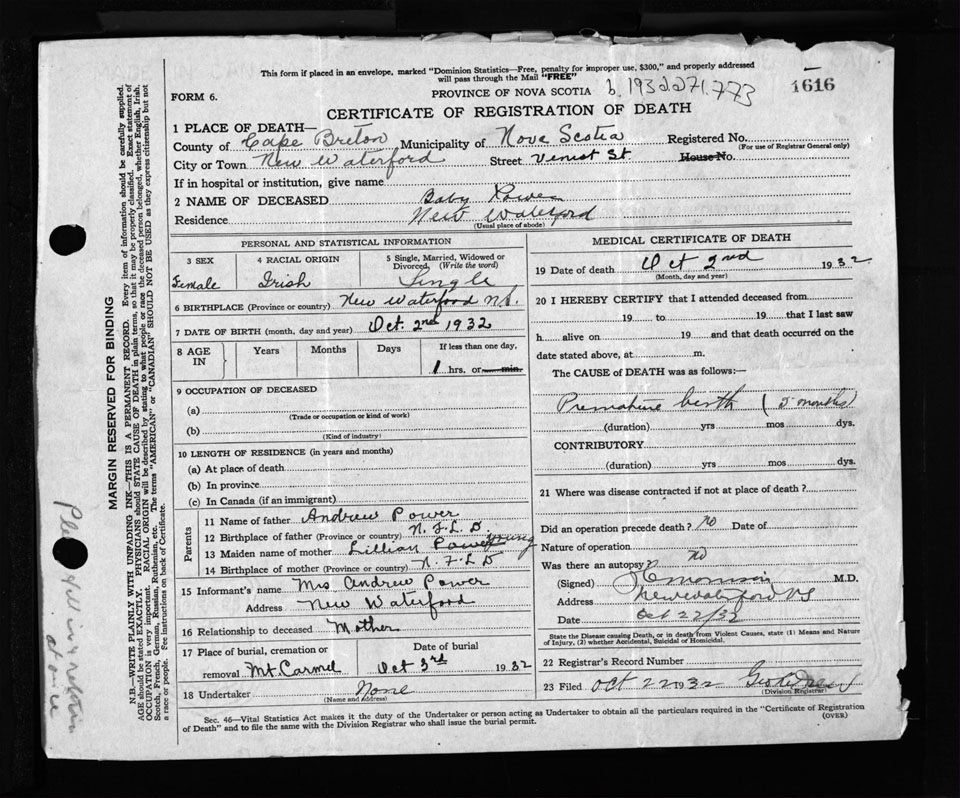 This form if placed in an envelope, marked "Dominion Statistics—Free, penalty for improper use, $300," and properly addressed
will pass through the Mail "FREE"
1616
FORM 6.
PROVINCE OF NOVA SCOTIA
b. 1932 271.773
CERTIFICATE OF REGISTRATION OF DEATH
1 PLACE OF DEATH—
County of Cape Breton Municipality of Nova Scotia Registered No.
(For use of Registrar General only)
City or Town New Waterford Street House No.
If in hospital or institution, give name
2 NAME OF DECEASED Baby Power
Residence New Waterford
(Usual place of abode)
PERSONAL AND STATISTICAL INFORMATION
3 SEX
Female
4 RACIAL ORIGIN
Irish
5 Single, Married, Widowed or
Divorced, (Write the word)
Single
6 BIRTHPLACE (Province or country) New Waterford N.S.
7 DATE OF BIRTH (month, day and year) Oct. 2nd 1932
8 AGE IN
Years Months Days If less than one day,
1 hrs. or min.
9 OCCUPATION OF DECEASED
(a)
(Trade or occupation or kind of work)
(b)
(Kind of industry)
10 LENGTH OF RESIDENCE (in years and months)
(a) At place of death
(b) In province
(c) In Canada (if an immigrant)
Parents
11 Name of father Andrew Power
12 Birthplace of father (Province or country) N.F.L.D.
13 Maiden name of mother Lillian Power Young
14 Birthplace of mother (Province or country) N.F.L.D
15 Informant's name Mrs Andrew Power
Address New Waterford
16 Relationship to deceased Mother
17 Place of burial, cremation or
removal Mt. Carmel
Date of burial
Oct 3rd 1932
18 Undertaker None
(Name and address)
MEDICAL CERTIFICATE OF DEATH
19 Date of death Oct 2nd 1932
(Month, day and year)
20 I HEREBY CERTIFY that I attended deceased from
19 to 19 that I last saw
h alive on 19 and that death occurred on the
date stated above, at m.
The CAUSE of DEATH was as follows:—
Premature birth (5 months)
(duration) yrs mos dys.
CONTRIBUTORY
(duration) yrs mos dys.
21 Where was disease contracted if not at place of death?
Did an operation precede death? no Date of
Nature of operation
Was there an autopsy? no
(Signed) M.D.
Address New Waterford NS
Date Oct 22/32
State the Disease causing Death, or in death from Violent Causes, state (1) Means and Nature
of Injury, (2) whether Accidental, Suicidal or Homicidal.
22 Registrar's Record Number
23 Filed Oct 22 1932
(Division Registrar)
Sec. 46—Vital Statistics Act makes it the duty of the Undertaker or person acting as Undertaker to obtain all the particulars required in the "Certificate of Registration
of Death" and to file the same with the Division Registrar who shall issue the burial permit.
(OVER)
MARGIN RESERVED FOR BINDING
N.B.—WRITE PLAINLY WITH UNFADING INK—THIS IS A PERMANENT RECORD. Every item of information should be carefully supplied.
AGE should be stated EXACTLY. PHYSICIANS should STATE CAUSE OF DEATH in plain terms, so that it may be properly classified. Exact statement of
OCCUPATION is very important. RACIAL ORIGIN will be described by stating to what people or race the deceased person belonged, whether English, Irish,
Scotch, French, German, Russian, Ruthenian, etc. The terms "AMERICAN" or "CANADIAN" SHOULD NOT BE USED as they express citizenship but not
a race or people. See instructions on back of Certificate.
at once